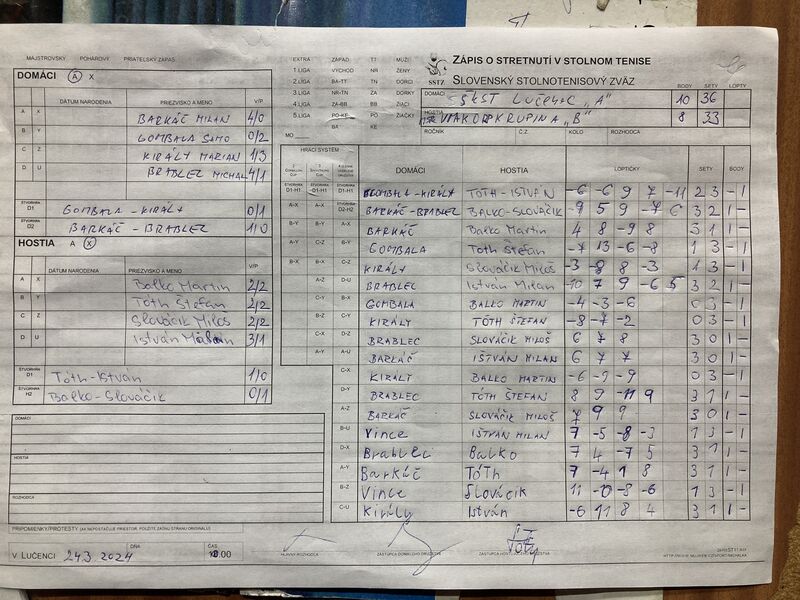 MAJSTROVSKÝ POHÁROVÝ PRIATEĽSKÝ ZÁPAS
DOMÁCI A X
DÁTUM NARODENIA PRIEZVISKO A MENO V/P
A X BARKÁČ MILAN 4/0
B Y GOMBALA SAMO 0/2
C Z KIRÁLY MARIAN 1/3
D U BRABLEC MICHAL 4/1
ŠTVORHRA D1 GOMBALA - KIRÁLY 0/1
ŠTVORHRA D2 BARKÁČ - BRABLEC 1/0
HOSTIA A X
DÁTUM NARODENIA PRIEZVISKO A MENO V/P
A X Balko Martin 2/2
B Y Tóth Štefan 2/2
C Z Slováčik Miloš 2/2
D U István Milan 3/1
ŠTVORHRA D1 Tóth - István 1/0
ŠTVORHRA H2 Balko - Slováčik 0/1
DOMÁCI
HOSTIA
ROZHODCA
PRIPOMIENKY/PROTESTY (AK NEPOSTAČUJE PRIESTOR, POUŽITE ZADNÚ STRANU ORIGINÁLU)
V LUČENCI 24.3. 2024 DŇA ČAS 10.00
EXTRA ZÁPAD TT MUŽI
1.LIGA VÝCHOD NR ŽENY
2.LIGA BA-TT TN DORCI
3.LIGA NR-TN ZA DORKY
4.LIGA ZA-BB BB ŽIACI
5.LIGA PO-KE PO ŽIAČKY
MO BA KE
SSTZ
ZÁPIS O STRETNUTÍ V STOLNOM TENISE
SLOVENSKÝ STOLNOTENISOVÝ ZVÄZ
BODY SETY LOPTY
DOMÁCI ŠKST LUČENEC "A" 10 36
HOSTIA KRUPINA "B" 8 33
ROČNÍK Č.Z. KOLO ROZHODCA
HRACÍ SYSTÉM
DOMÁCI HOSTIA LOPTIČKY SETY BODY
GOMBALA - KIRÁLY TÓTH - ISTVÁN -6 -6 9 7 -11 2 3 - 1
BARKÁČ - BRABLEC BALKO - SLOVÁČIK -9 5 9 -7 6 3 2 1 -
BARKÁČ Balko Martin 4 8 -9 8 3 1 1 -
GOMBALA Tóth Štefan -7 13 -6 -8 1 3 - 1
KIRÁLY Slováčik Miloš -3 -8 8 -3 1 3 - 1
BRABLEC István Milan -10 7 9 -6 5 3 2 1 -
GOMBALA BALKO MARTIN -4 -3 -6 0 3 - 1
KIRÁLY TÓTH ŠTEFAN -8 -7 -2 0 3 - 1
BRABLEC SLOVÁČIK MILOŠ 6 7 8 3 0 1 -
BARKÁČ IŠTVÁN MILAN 6 7 7 3 0 1 -
C-X KIRÁLY BALKO MARTIN -6 -9 -9 0 3 - 1
D-Y BRABLEC TÓTH ŠTEFAN 8 9 -11 9 3 1 1 -
A-Z BARKÁČ SLOVÁČIK MILOŠ 7 9 9 3 0 1 -
B-U Vince IŠTVÁN MILAN 7 -5 -8 -3 1 3 - 1
D-X Brablec Balko 7 4 -7 5 3 1 1 -
A-Y Barkáč TÓTh 7 -4 1 8 3 1 1 -
B-Z Vince Slovácik 11 -10 -8 -6 1 3 - 1
C-U Király István -6 11 8 4 3 1 1 -
HLAVNÝ ROZHODCA ZÁSTUPCA DOMÁCEHO DRUŽSTVA ZÁSTUPCA HOSTÍ DRUŽSTVA